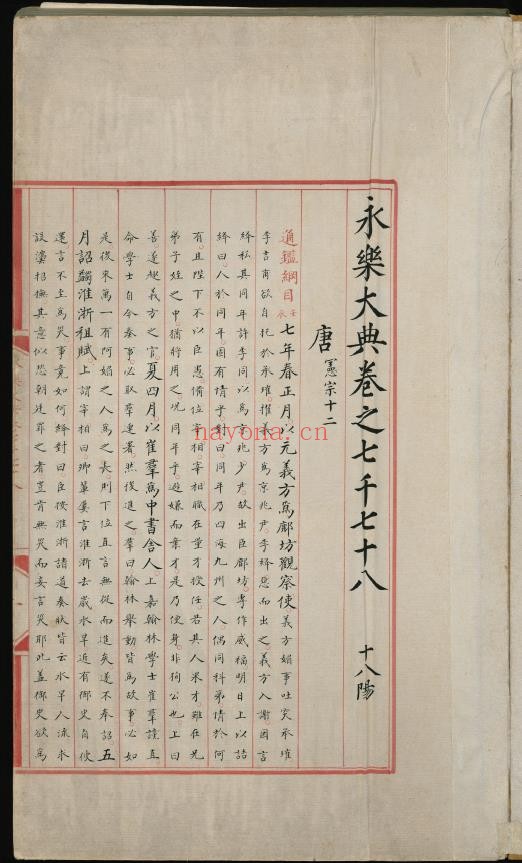 永樂大典卷之七千七十八　十八陽
唐　憲宗十二
通鑑綱目 壬辰 七年春正月以元義方爲鄜坊觀察使義方媚事吐突承璀
李吉甫欲自托於承璀擢義方爲京兆尹李絳惡而出之義方入謝因言
絳私其同年許季同以爲京兆少尹故出臣鄜坊專作威福明日上以詰
絳曰人於同年固有情乎對曰同年乃四海九州之人偶同科第情於何
有且陛下不以臣愚備位宰相宰相職在量才授任若其人果才雖在兄
弟子姪之中猶將用之况同年乎避嫌而棄才是乃便身非狥公也上曰
善遂趣義方之官夏四月以崔羣爲中書舍人上嘉翰林學士崔羣讜直
命學士自今奏事必取羣連署然後進之羣曰翰林舉動皆爲故事必如
是後來萬一有阿媚之人爲之長則下位直言無從而進矣遂不奉詔五
月詔蠲淮浙租賦上謂宰相曰卿輩屢言淮浙去歲水旱近有御史自彼
還言不至爲災事竟如何絳對曰臣按淮浙諸道奏狀皆云水旱人流求
設法招撫其意似恐朝廷罪之者豈肯無災而妄言災耶此蓋御史欲爲
nayona.cn